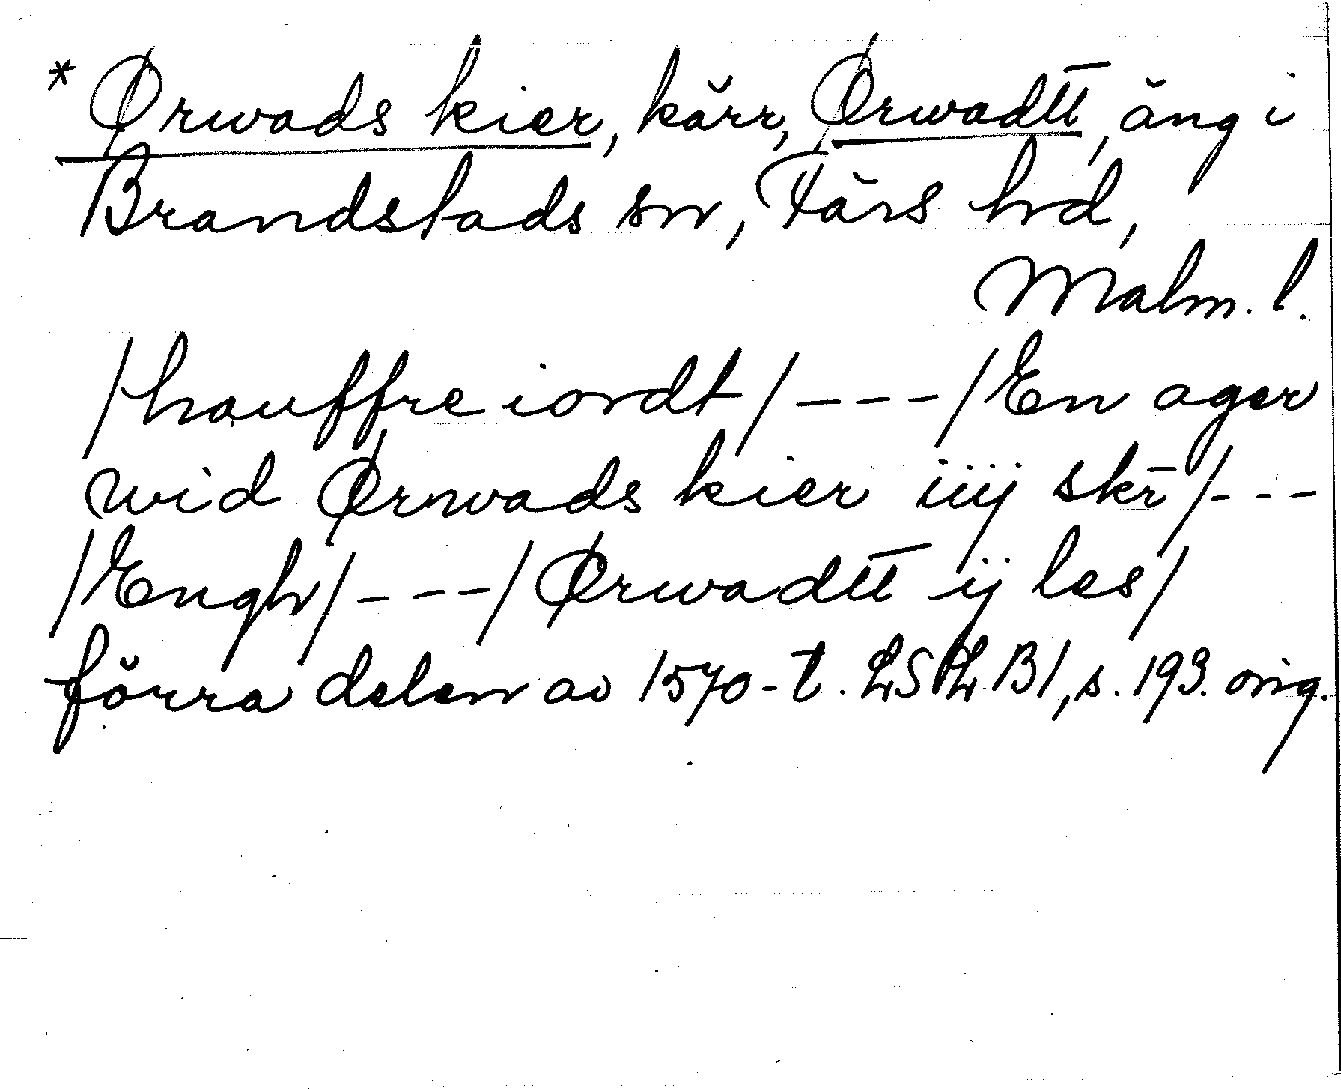 * Ørwads kier, kärr, Ørwadtt, äng i
Brandstads sn, Färs hd,
Malm. l.
/hauffre iordt/ --- /En ager
wid Ørwads kier iiij skr̄/ ---
/Engh/ --- /Ørwadtt ij les/
förra delen av 1570-t. LSPL B1, s. 193. orig.